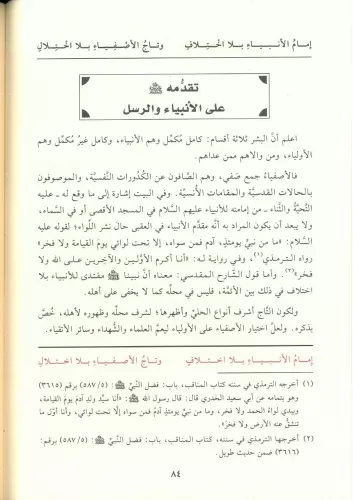 إمامُ الأنبياءِ بلا اختِلافِ وتاجُ الأصفياءِ بلا اختلالِ
تقدُّمه ﷺ
على الأنبياء والرسل
اعلم أنَّ البشر ثلاثة أقسام: كامل مُكمِّل وهم الأنبياء، وكامل غيرُ مُكمِّل وهم
الأولياء، ومن والاهم ممن عداهم.
فالأصفياءُ جمع صَفي، وهم الصَّافون عن الكُدورات النَّفسيَّة، والموصوفون
بالحالات القدسيَّة والمقامات الأُنسيَّة. وفي البيت إشارة إلى ما وقع له ـ عليه
التَّحيَّة والثَّناء ـ من إمامته للأنبياء عليهم السَّلام في المسجد الأقصى أو في السَّماء،
ولا يبعد أن يكون المراد به أنَّه مقدَّمهم في العقبى حال نشر اللِّواء؛ لقوله عليه
السَّلام: «ما من نبيٍّ يومئذٍ، آدم فمن سواه، إلَّا تحت لوائي يومَ القيامة ولا فخر»
رواه الترمذي(١)، وفي رواية له: «أنا أكرم الأوَّلين والآخرين على الله ولا
فخر»(٢). وأما قول الشَّارح المقدسي: معناه أنَّ نبينا ﷺ مقتدى للأنبياء بلا
اختلاف في ذلك بين الأئمَّة، فليس في محلِّه كما لا يخفى على أهله.
ولكون التَّاج أشرف أنواع الحلي وأظهرها؛ لشرف محلِّه وظهوره لأهله، خُصَّ
بذكره. ولعلَّ اختيار الأصفياء على الأولياء ليعمَّ العلماء والشهداء وسائر الأتقياء.
إمامُ الأنبياءِ بلا اختلافِ وتاجُ الأصفياءِ بلا اختلالِ
(١) أخرجه الترمذي في سننه كتاب المناقب، باب: فضل النَّبيِّ ﷺ: (٥٨٧/٥) برقم (٣٦١٥)
وهو بتمامه عن أبي سعيد الخدري قال: قال رسول الله ﷺ: «أنا سيِّد ولد آدم يوم القيامة،
وبيدي لواءُ الحمد ولا فخر، وما من نبيٍّ يومئذٍ آدم فمن سواه إلَّا تحت لوائي، وأنا أوَّل من
تنشقُّ عنه الأرض ولا فخر».
(٢) أخرجها الترمذي في سننه، كتاب المناقب، باب: فضل النَّبيِّ ﷺ: (٥٨٧/٥) برقم:
(٣٦١٦) ضمن حديث طويل.
٨٤